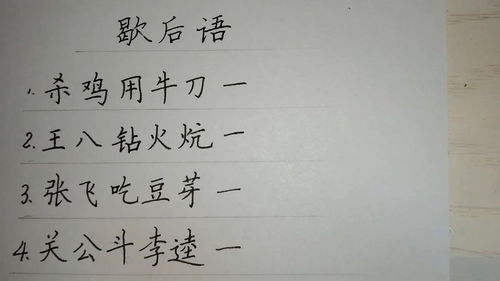 歇后语
1.杀鸡用牛刀一
2.王八钻火炕一
3.张飞吃豆芽一
4.关公斗李逵一